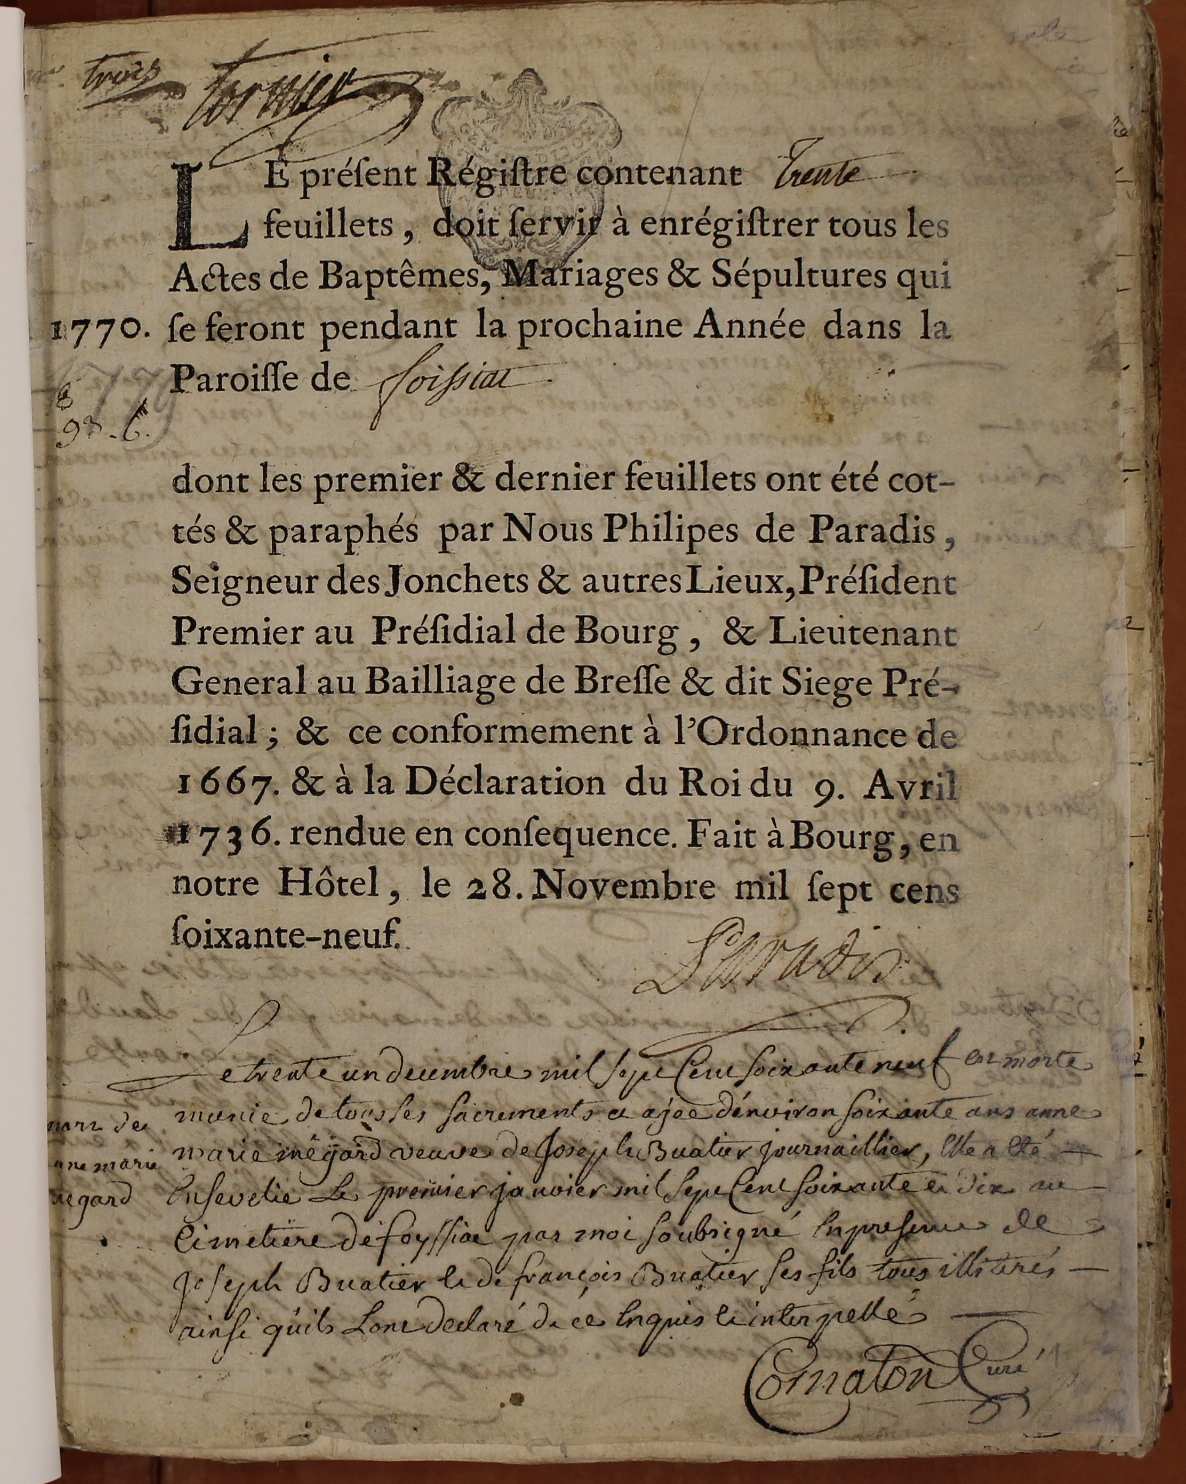 trois
LE préſent Régiſtre contenant trente
feuillets, doit ſervir à enrégiſtrer tous les
Actes de Baptêmes, Mariages & Sépultures qui
1770. ſe feront pendant la prochaine Année dans la
Paroiſſe de foissiat
dont les premier & dernier feuillets ont été cot-
tés & paraphés par Nous Philipes de Paradis,
Seigneur des Jonchets & autres Lieux, Préſident
Premier au Préſidial de Bourg, & Lieutenant
General au Bailliage de Breſſe & dit Siege Pré-
ſidial; & ce conformement à l'Ordonnance de
1667. & à la Déclaration du Roi du 9. Avril
1736. rendue en conſequence. Fait à Bourg, en
notre Hôtel, le 28. Novembre mil ſept cens
ſoixante-neuf.
Paradis
Le trente un decembre mil sept Cent soixante neuf est morte
munie de tous les sacrements et agee d'environ soixante ans anne
marie mégard veuve de Joseph Buatier journaillier, Elle a eté
Ensevelie Le premier janvier mil sept Cent soixante et dix au
Cimetiere de foyssiat par moi soubsigné En presence de
joseph Buatier et de françois Buatier ses fils tous illitirés
ainsi qu'ils L'ont declaré de ce Enquis et interpellé
anne marie
mégard
Comaton Curé